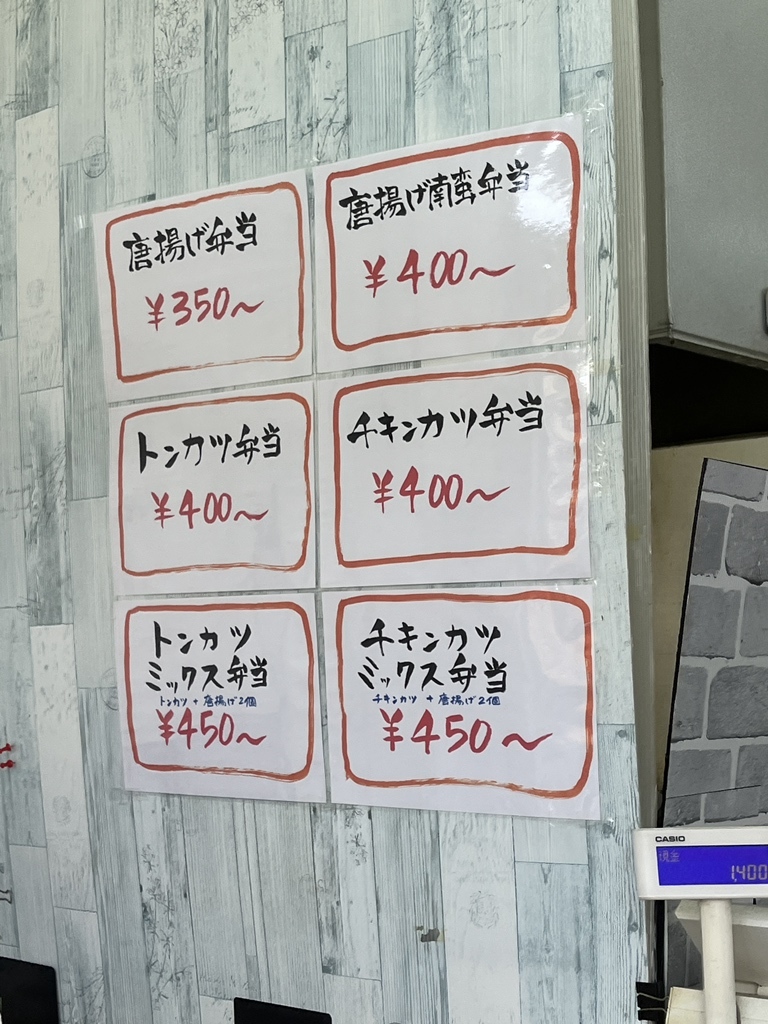 唐揚げ弁当
¥350〜
唐揚げ南蛮弁当
¥400〜
トンカツ弁当
¥400〜
チキンカツ弁当
¥400〜
トンカツ
ミックス弁当
トンカツ + 唐揚げ2個
¥450〜
チキンカツ
ミックス弁当
チキンカツ + 唐揚げ2個
¥450〜
CASIO
現金
1,400